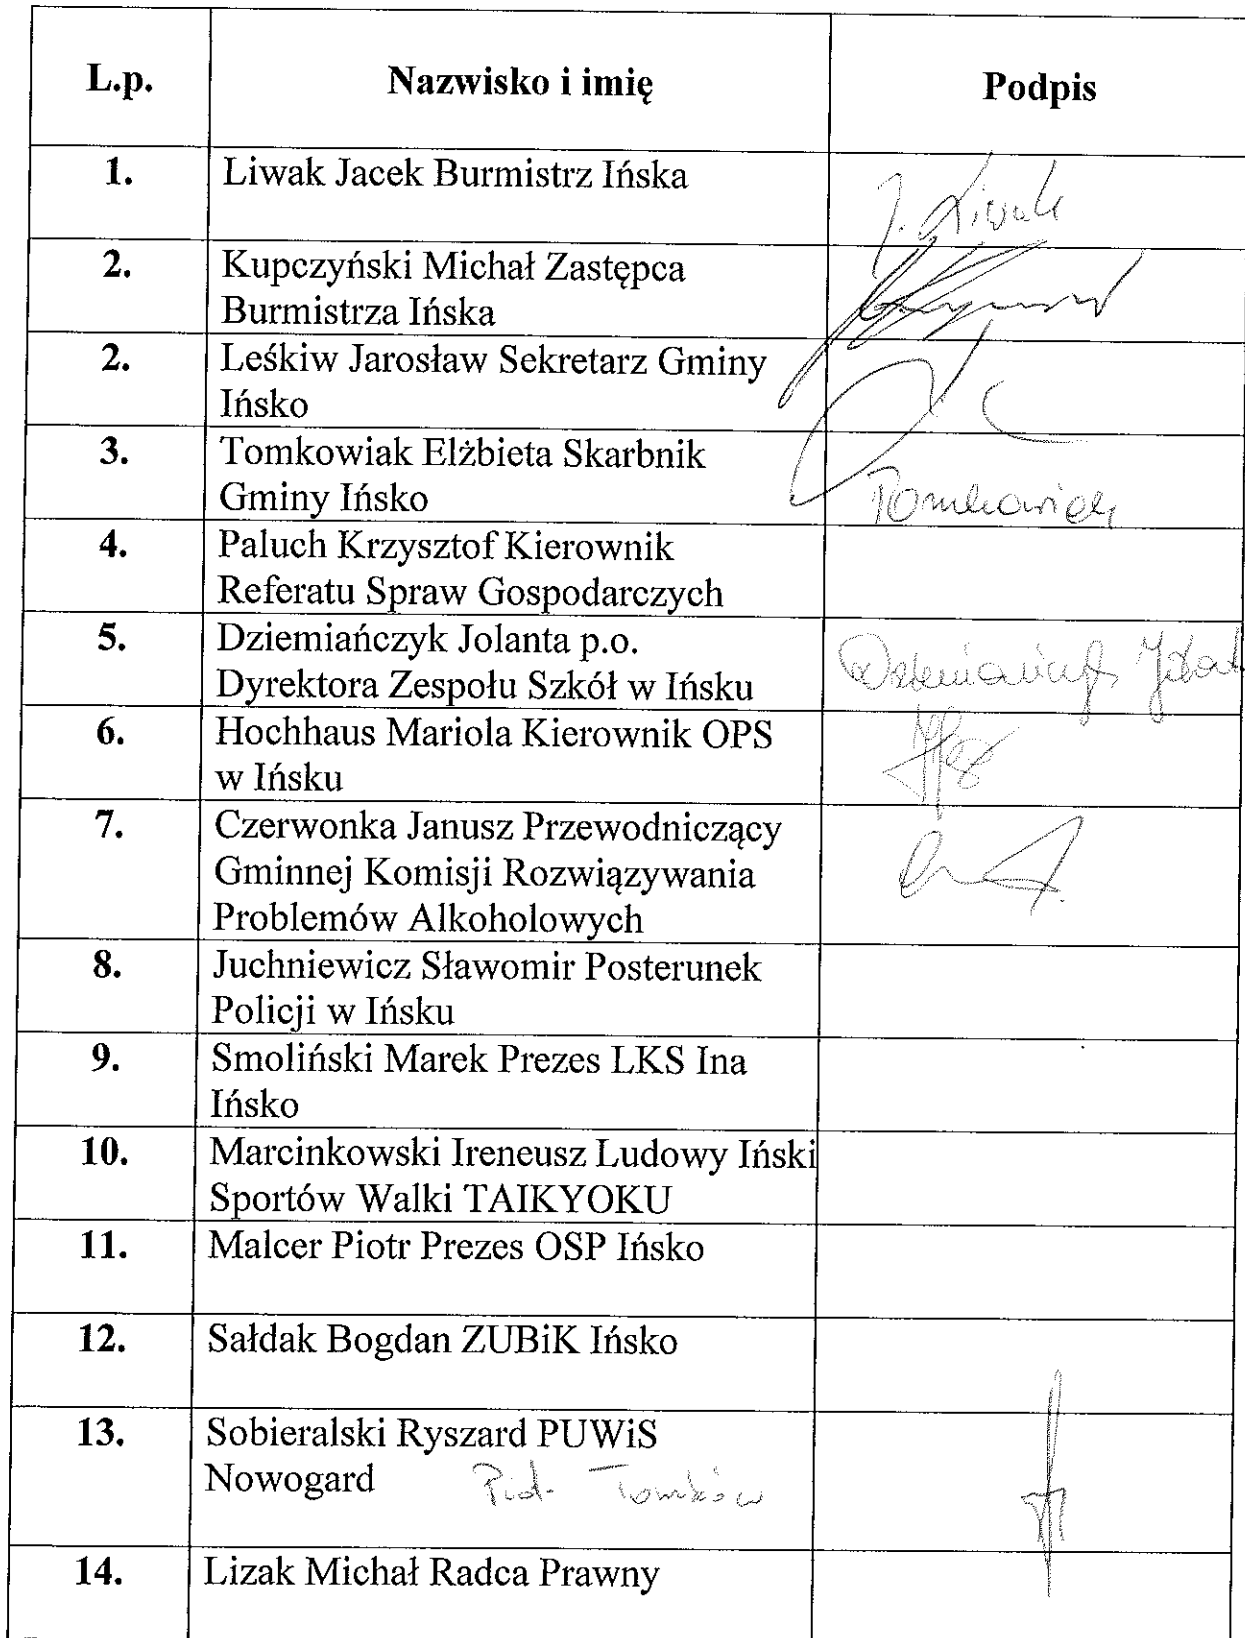 L.p. Nazwisko i imię Podpis
1. Liwak Jacek Burmistrz Ińska J. Liwak
2. Kupczyński Michał Zastępca
Burmistrza Ińska
2. Leśkiw Jarosław Sekretarz Gminy
Ińsko
3. Tomkowiak Elżbieta Skarbnik
Gminy Ińsko Tomkowiak
4. Paluch Krzysztof Kierownik
Referatu Spraw Gospodarczych
5. Dziemiańczyk Jolanta p.o.
Dyrektora Zespołu Szkół w Ińsku Dziemiańczyk
6. Hochhaus Mariola Kierownik OPS
w Ińsku
7. Czerwonka Janusz Przewodniczący
Gminnej Komisji Rozwiązywania
Problemów Alkoholowych
8. Juchniewicz Sławomir Posterunek
Policji w Ińsku
9. Smoliński Marek Prezes LKS Ina
Ińsko
10. Marcinkowski Ireneusz Ludowy Iński
Sportów Walki TAIKYOKU
11. Malcer Piotr Prezes OSP Ińsko
12. Sałdak Bogdan ZUBiK Ińsko
13. Sobieralski Ryszard PUWiS
Nowogard Piotr Tomków
14. Lizak Michał Radca Prawny